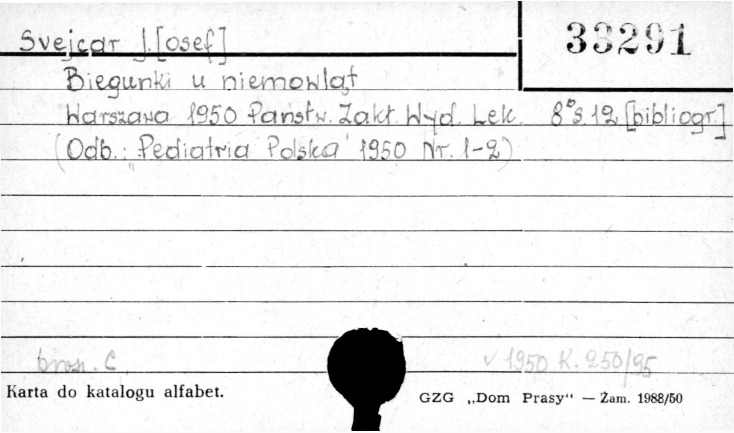 Svejcar J.[osef]
33291
Biegunki u niemowląt
Warszawa 1950 Państw. Zakł. Wyd. Lek. 8° s. 12 [bibliogr.]
(Odb.: "Pediatria Polska" 1950 Nr. 1-2)
brosz. C v 1950 K. 250/95
Karta do katalogu alfabet.
GZG „Dom Prasy“ — Zam. 1988/50